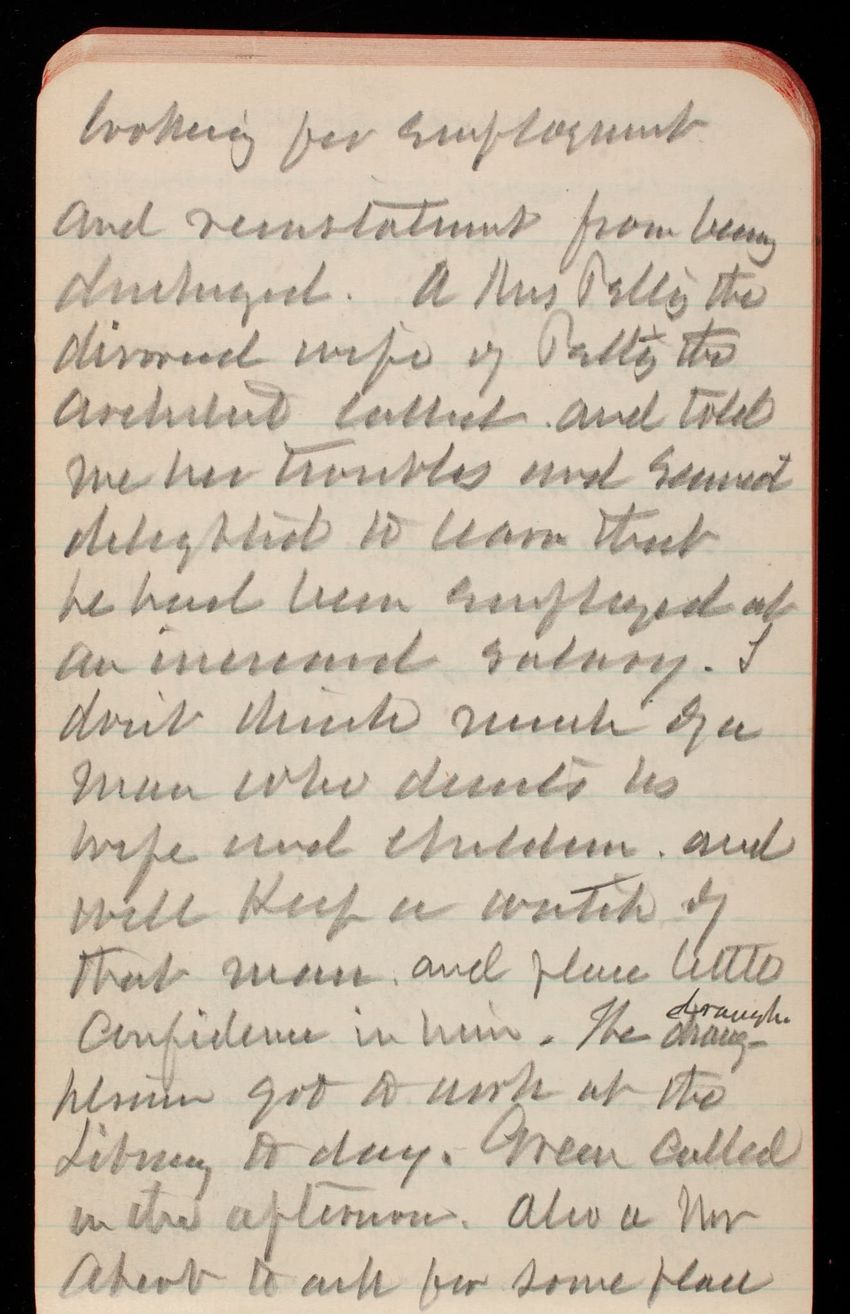 looking for employment
and reinstatment from being
discharged. A Mrs Pelty the
divorced wife of Pelty the
Architect called and told
me her troubles and seemed
delighted to learn that
he had been employed at
an increased salary. I
don't think much of a
man who deserts his
wife and children. and
will keep a watch of
that man. and place little
draugh
Confidence in him. The
got to work at the
Library to day. Green called
in the afternoon. Also a Mr
to ask for some place